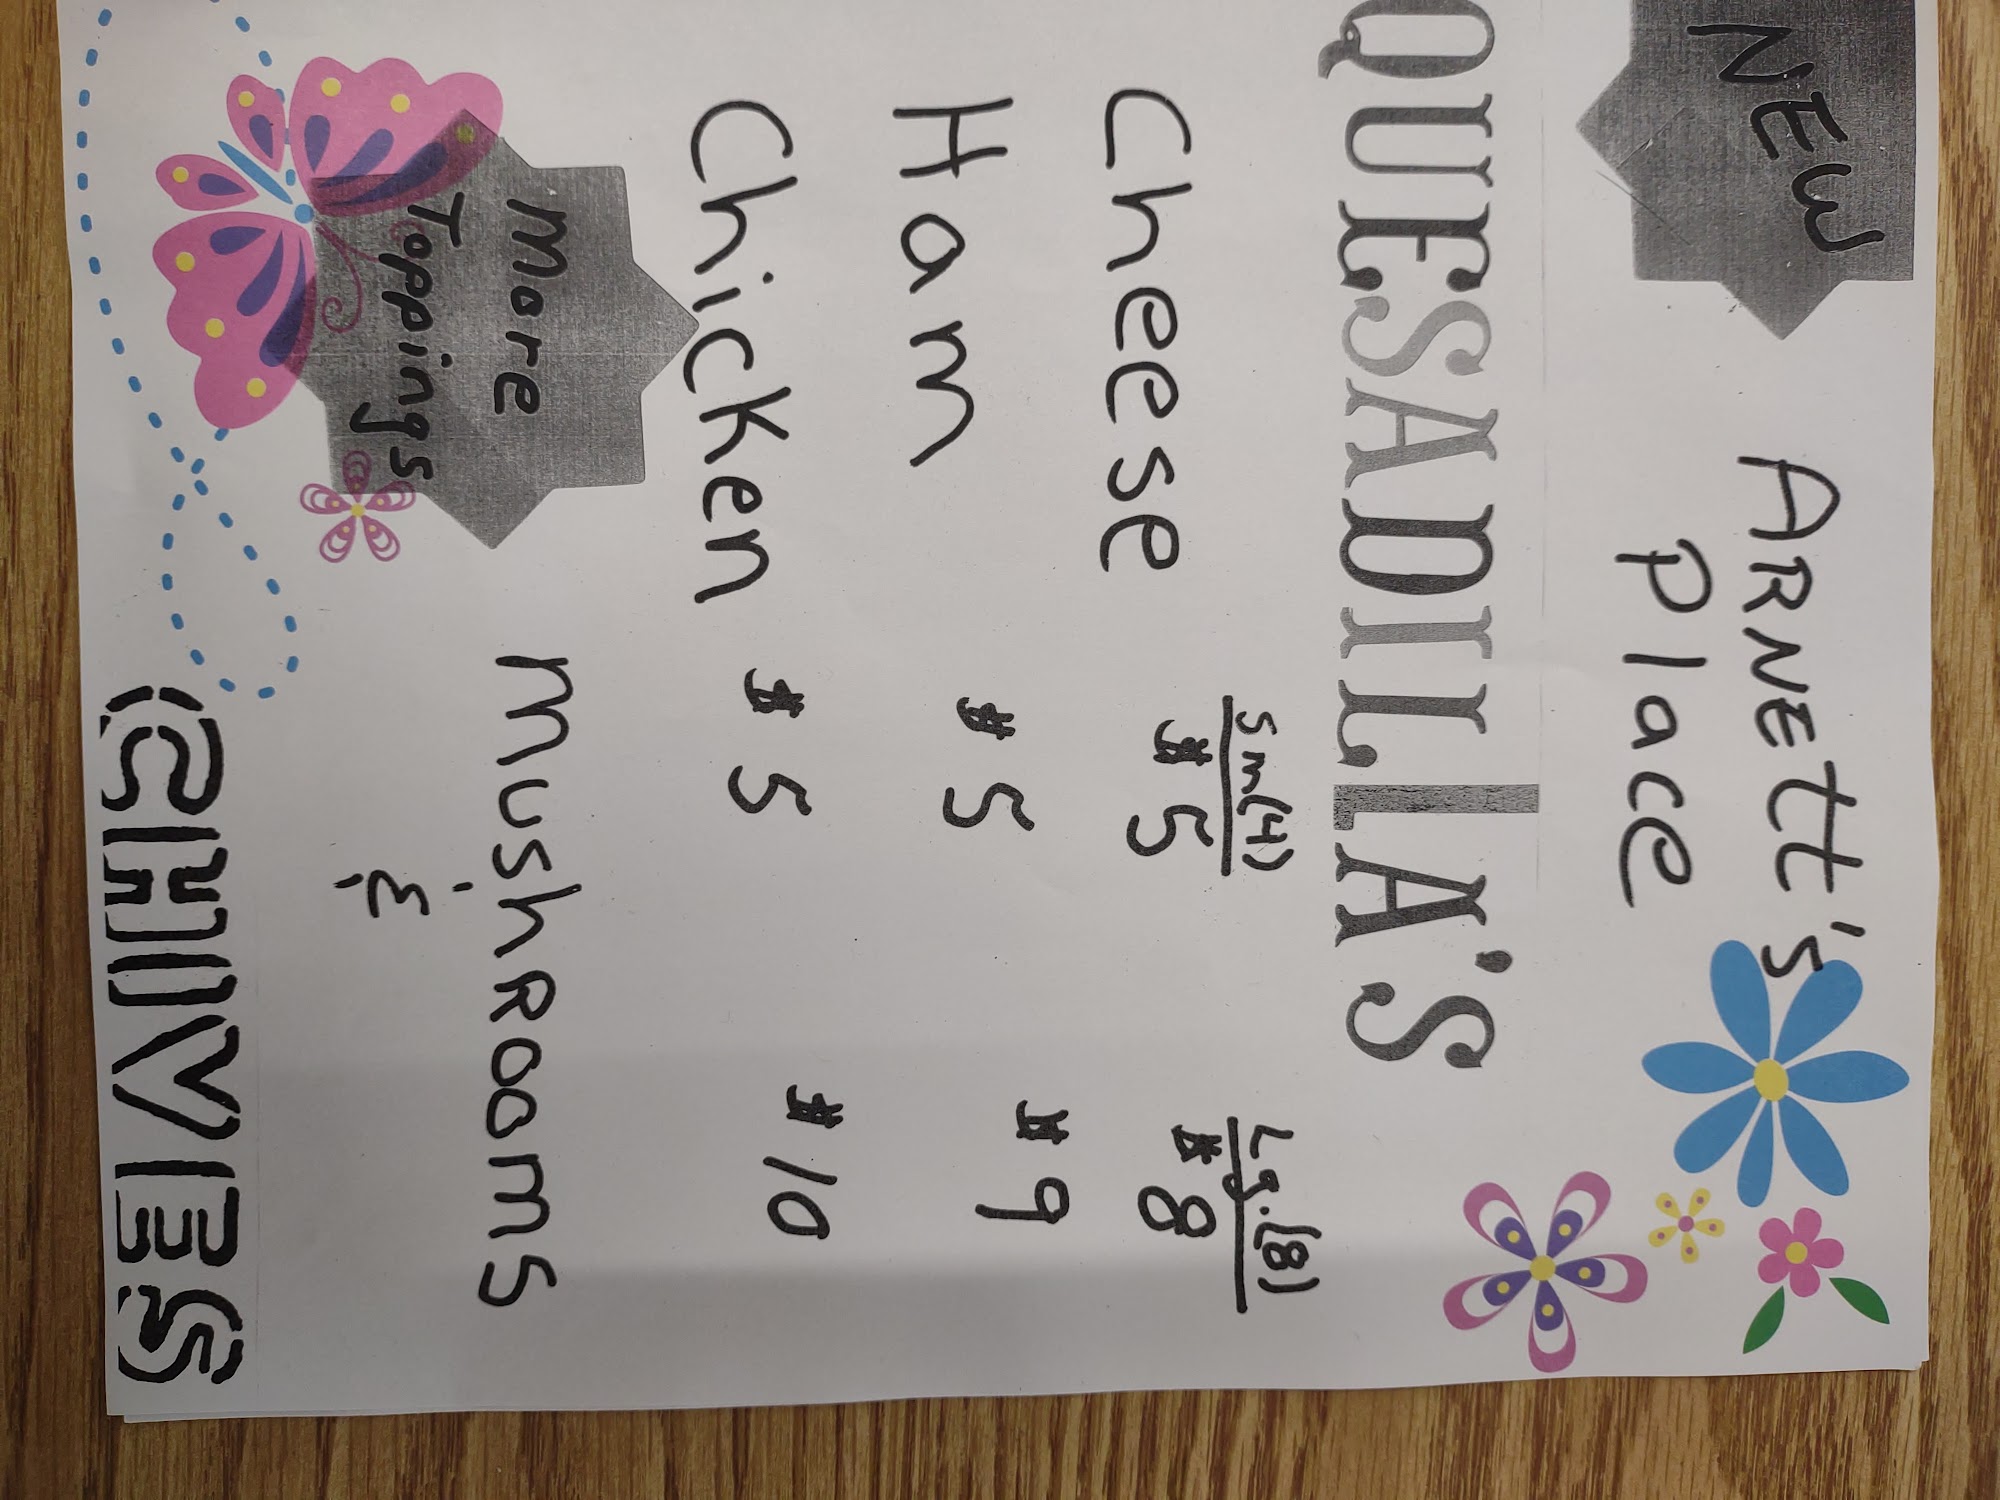 NEW
ARNEtt's
place
QUESADILLA'S
Sm(4) Lg.(8)
Cheese $5 $8
Ham $5 $9
Chicken $5 $10
more
Toppings
mushRooms
&
CHIVES